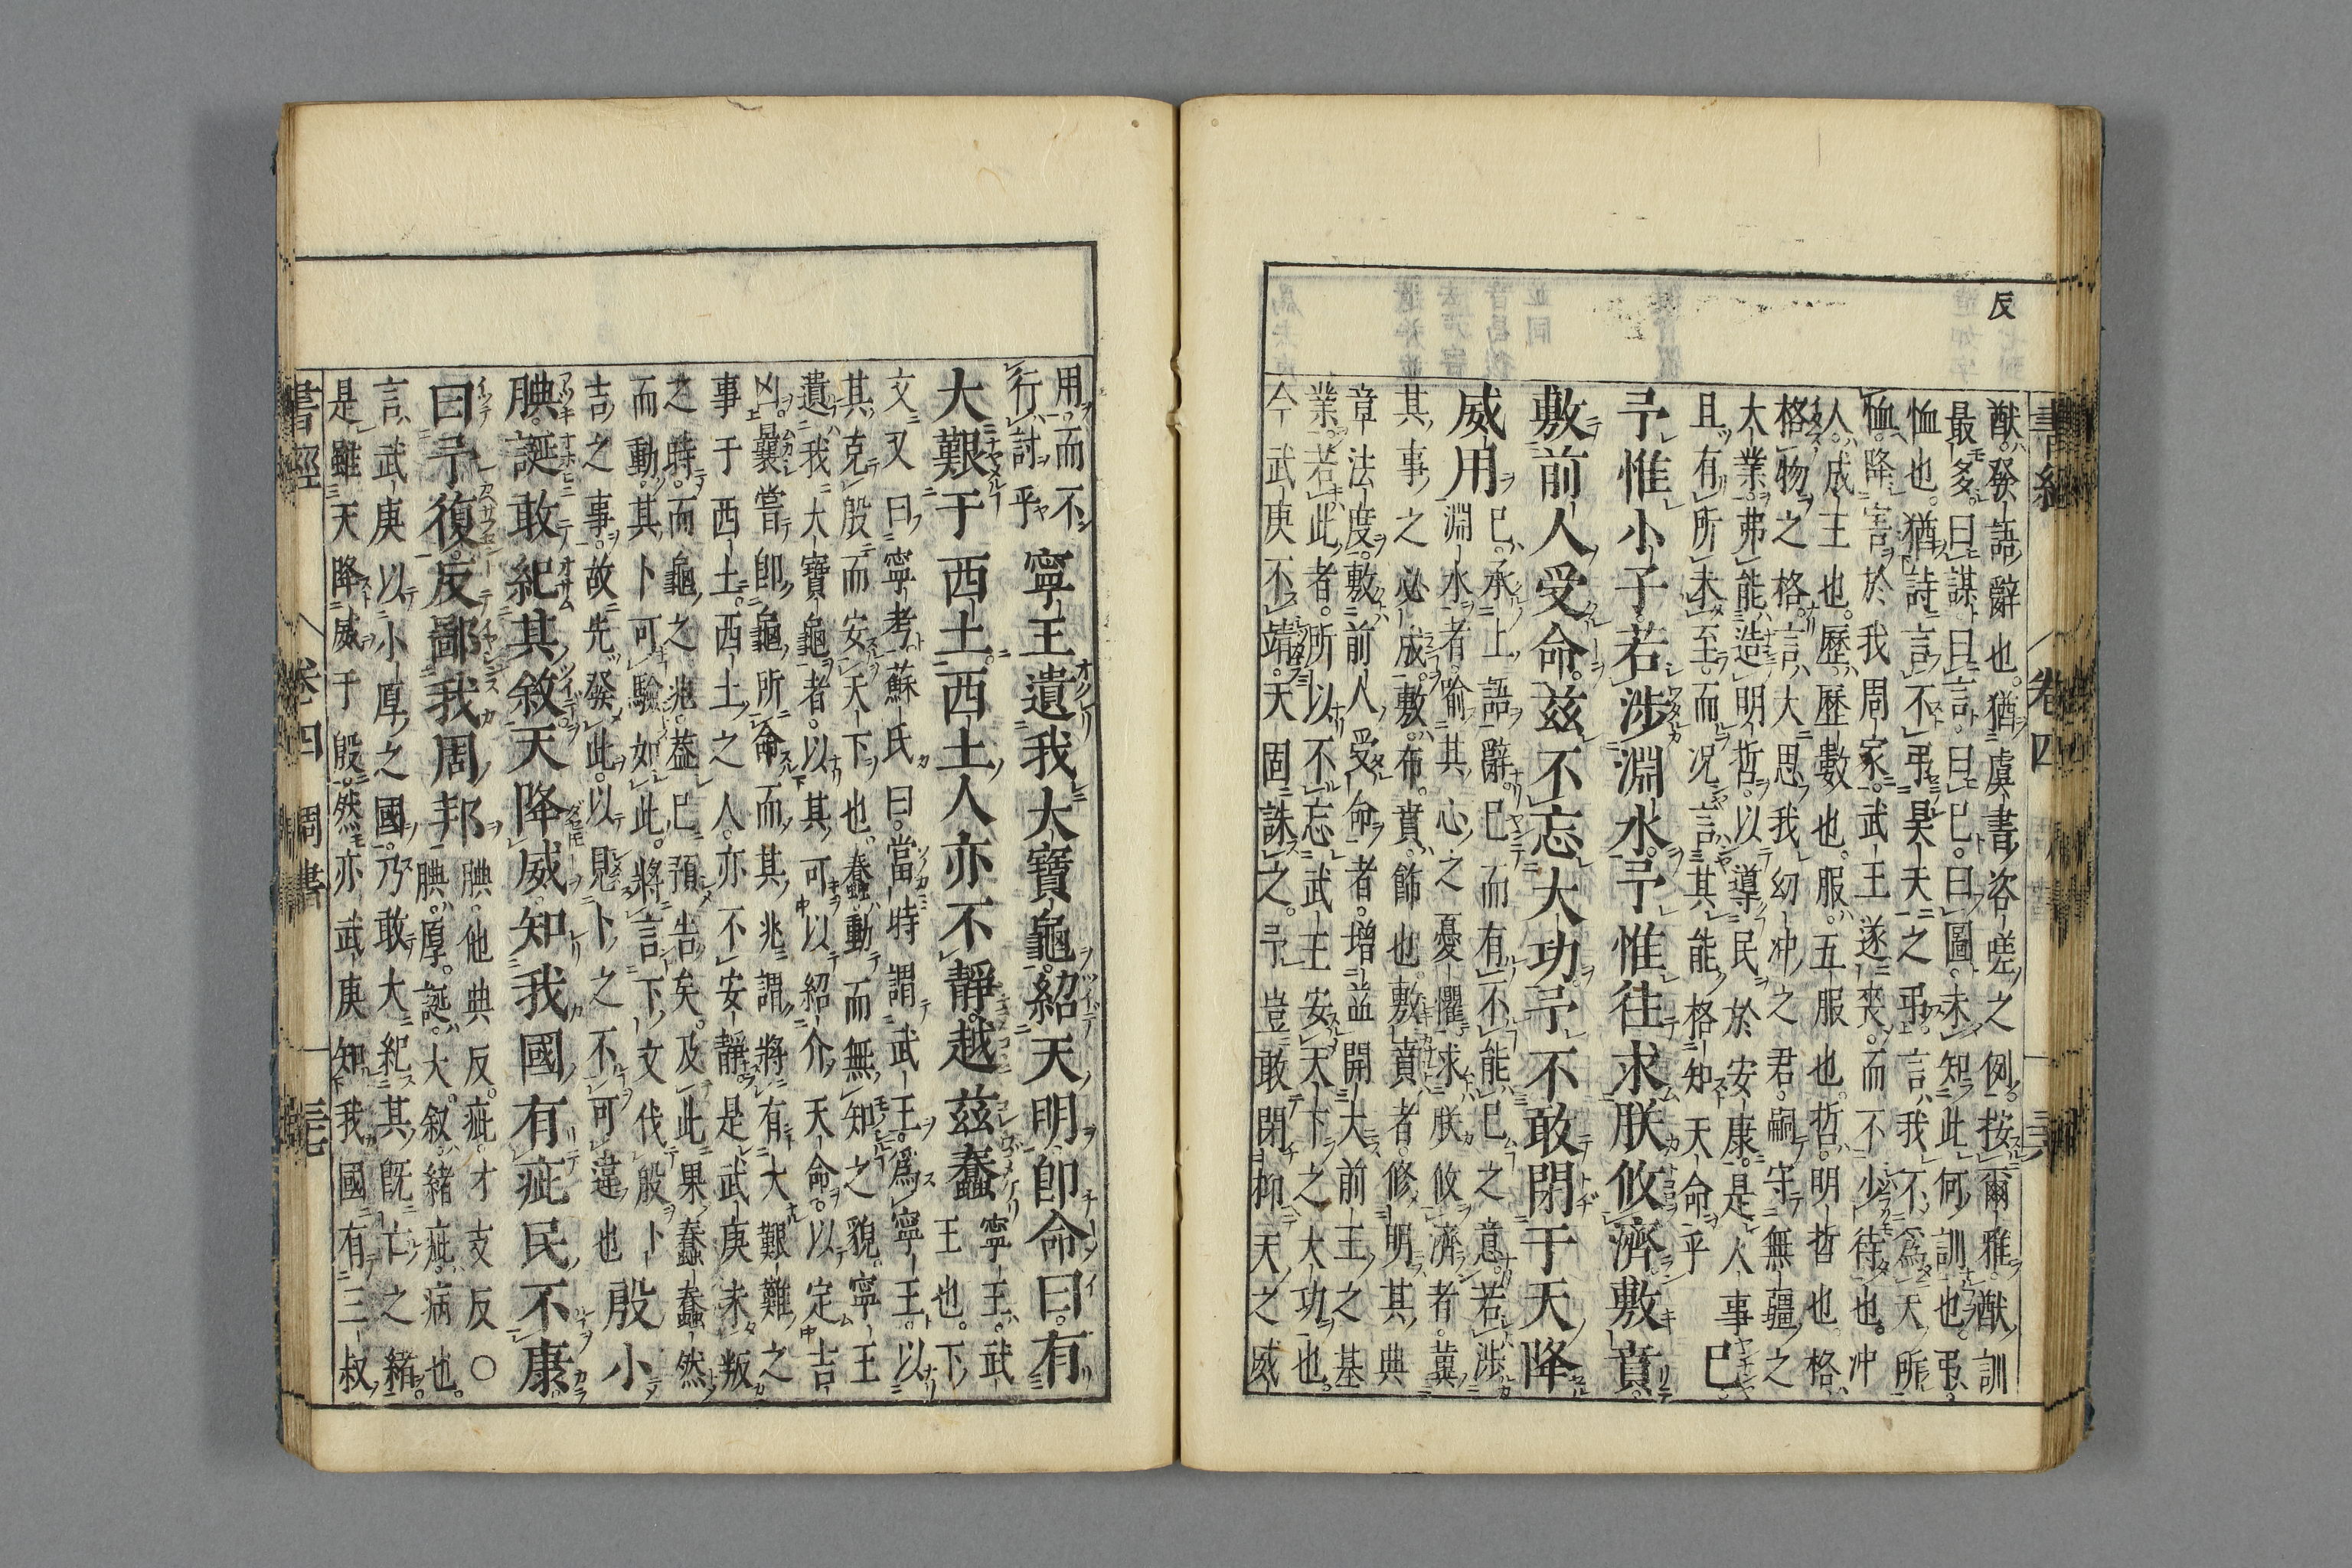 反
書經 卷四
猷發語辭也猶虞書咨嗟之例按爾雅猷訓
最多曰謀曰言曰已曰圖未知此何訓也弔
恤也猶詩言不弔昊天之弔言我不為天所
恤降害於我周家武王遂喪而不少待也冲
人成王也歷歷數也服五服也哲明哲也格
格物之格言大思我幼冲之君嗣守無疆之
大業弗能造明哲以導民於安康是人事
且有所未至而况言其能格知天命乎 已
予惟小子若涉淵水予惟往求朕攸濟敷賁
敷前人受命茲不忘大功予不敢閉于天降
威用 已承上語辭已而有不能已之意若涉
淵水者喻其心之憂懼求朕攸濟者冀
其事之必成敷布賁飾也敷賁者修明其典
章法度敷前人受命者增益開大前王之基
業若此者所以不忘武王安天下之大功也
今武庚不靖天固誅之予豈敢閉抑天之威
用而不
行討乎 寧王遺我大寶龜紹天明即命曰有
大艱于西土西土人亦不靜越茲蠢 寧王武
王也下
文又曰寧考蘇氏曰當時謂武王為寧王以
其克殷而安天下也蠢動而無知之貌寧王
遺我大寶龜者以其可以紹介天命以定吉
凶曩嘗即龜所命而其兆謂將有大艱難之
事于西土西土之人亦不安靜是武庚未叛
之時而龜之兆蓋已預告矣及此果蠢蠢然
而動其卜可驗如此將言下文伐殷卜
吉之事故先發此以見卜之不可違也 殷小
腆誕敢紀其敘天降威知我國有疵民不康
曰予復反鄙我周邦 腆他典反疵才支反○
腆厚誕大敘緒疵病也
言武庚以小厚之國乃敢大紀其既亡之緒
是雖天降威于殷然亦武庚知我國有三叔
書經 卷四 周書